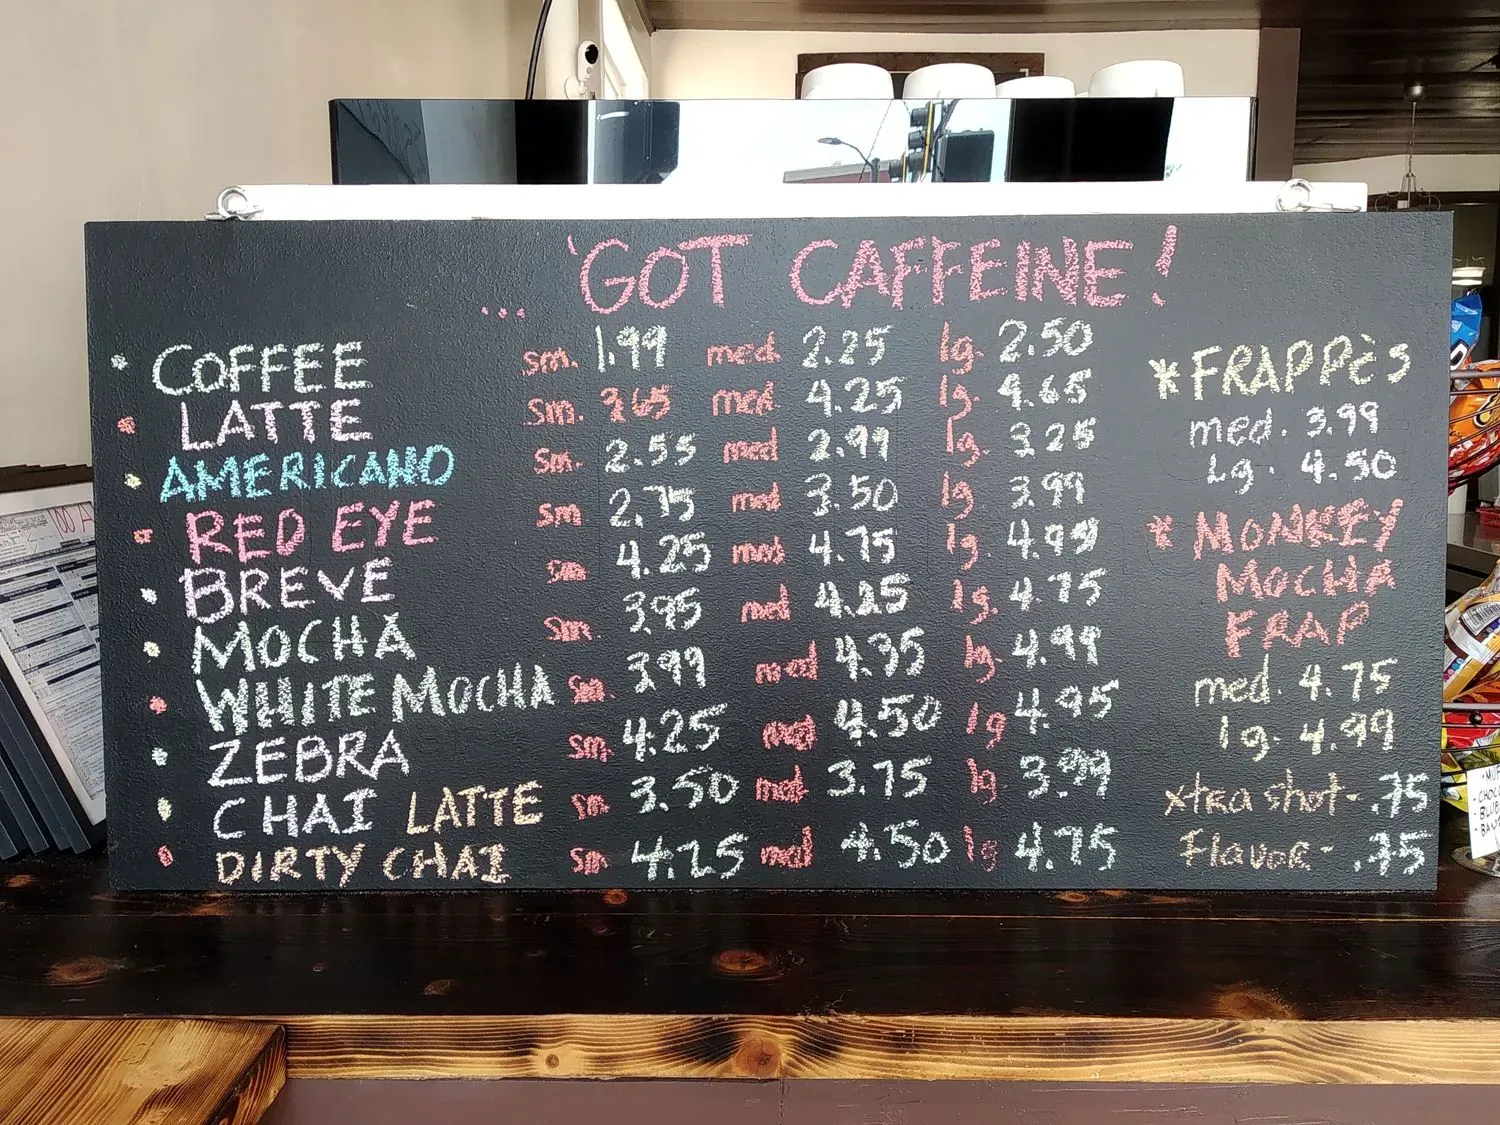 ... 'GOT CAFFEINE!
COFFEE sm. 1.99 med. 2.25 lg. 2.50
LATTE sm. 3.65 med. 4.25 lg. 4.65
AMERICANO sm. 2.55 med 2.99 lg. 3.25
RED EYE sm 2.75 med 3.50 lg 3.99
BREVE sm 4.25 med 4.75 lg. 4.99
MOCHA sm. 3.95 med 4.25 lg. 4.75
WHITE MOCHA sm. 3.99 med 4.35 lg. 4.99
ZEBRA sm. 4.25 med 4.50 lg 4.95
CHAI LATTE sm. 3.50 med. 3.75 lg 3.99
DIRTY CHAI sm 4.25 med 4.50 lg 4.75
*FRAPPÈS
med. 3.99
Lg. 4.50
* MONKEY
MOCHA
FRAP
med. 4.75
lg. 4.99
xtra shot- .75
Flavor- .75